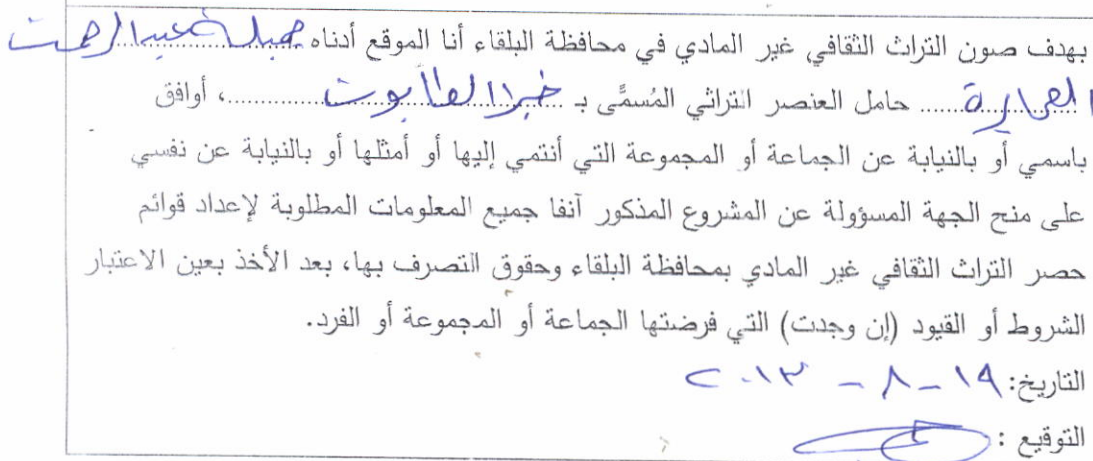 بهدف صون التراث الثقافي غير المادي في محافظة البلقاء أنا الموقع أدناه جميلة عبدالرحمن
........ حامل العنصر التراثي المُسمَّى بـ خبز الطابون ........، أوافق
باسمي أو بالنيابة عن الجماعة أو المجموعة التي أنتمي إليها أو أمثلها أو بالنيابة عن نفسي
على منح الجهة المسؤولة عن المشروع المذكور آنفا جميع المعلومات المطلوبة لإعداد قوائم
حصر التراث الثقافي غير المادي بمحافظة البلقاء وحقوق التصرف بها، بعد الأخذ بعين الاعتبار
الشروط أو القيود (إن وجدت) التي فرضتها الجماعة أو المجموعة أو الفرد.
التاريخ: ١٩ - ٨ - ٢٠١٣
التوقيع :